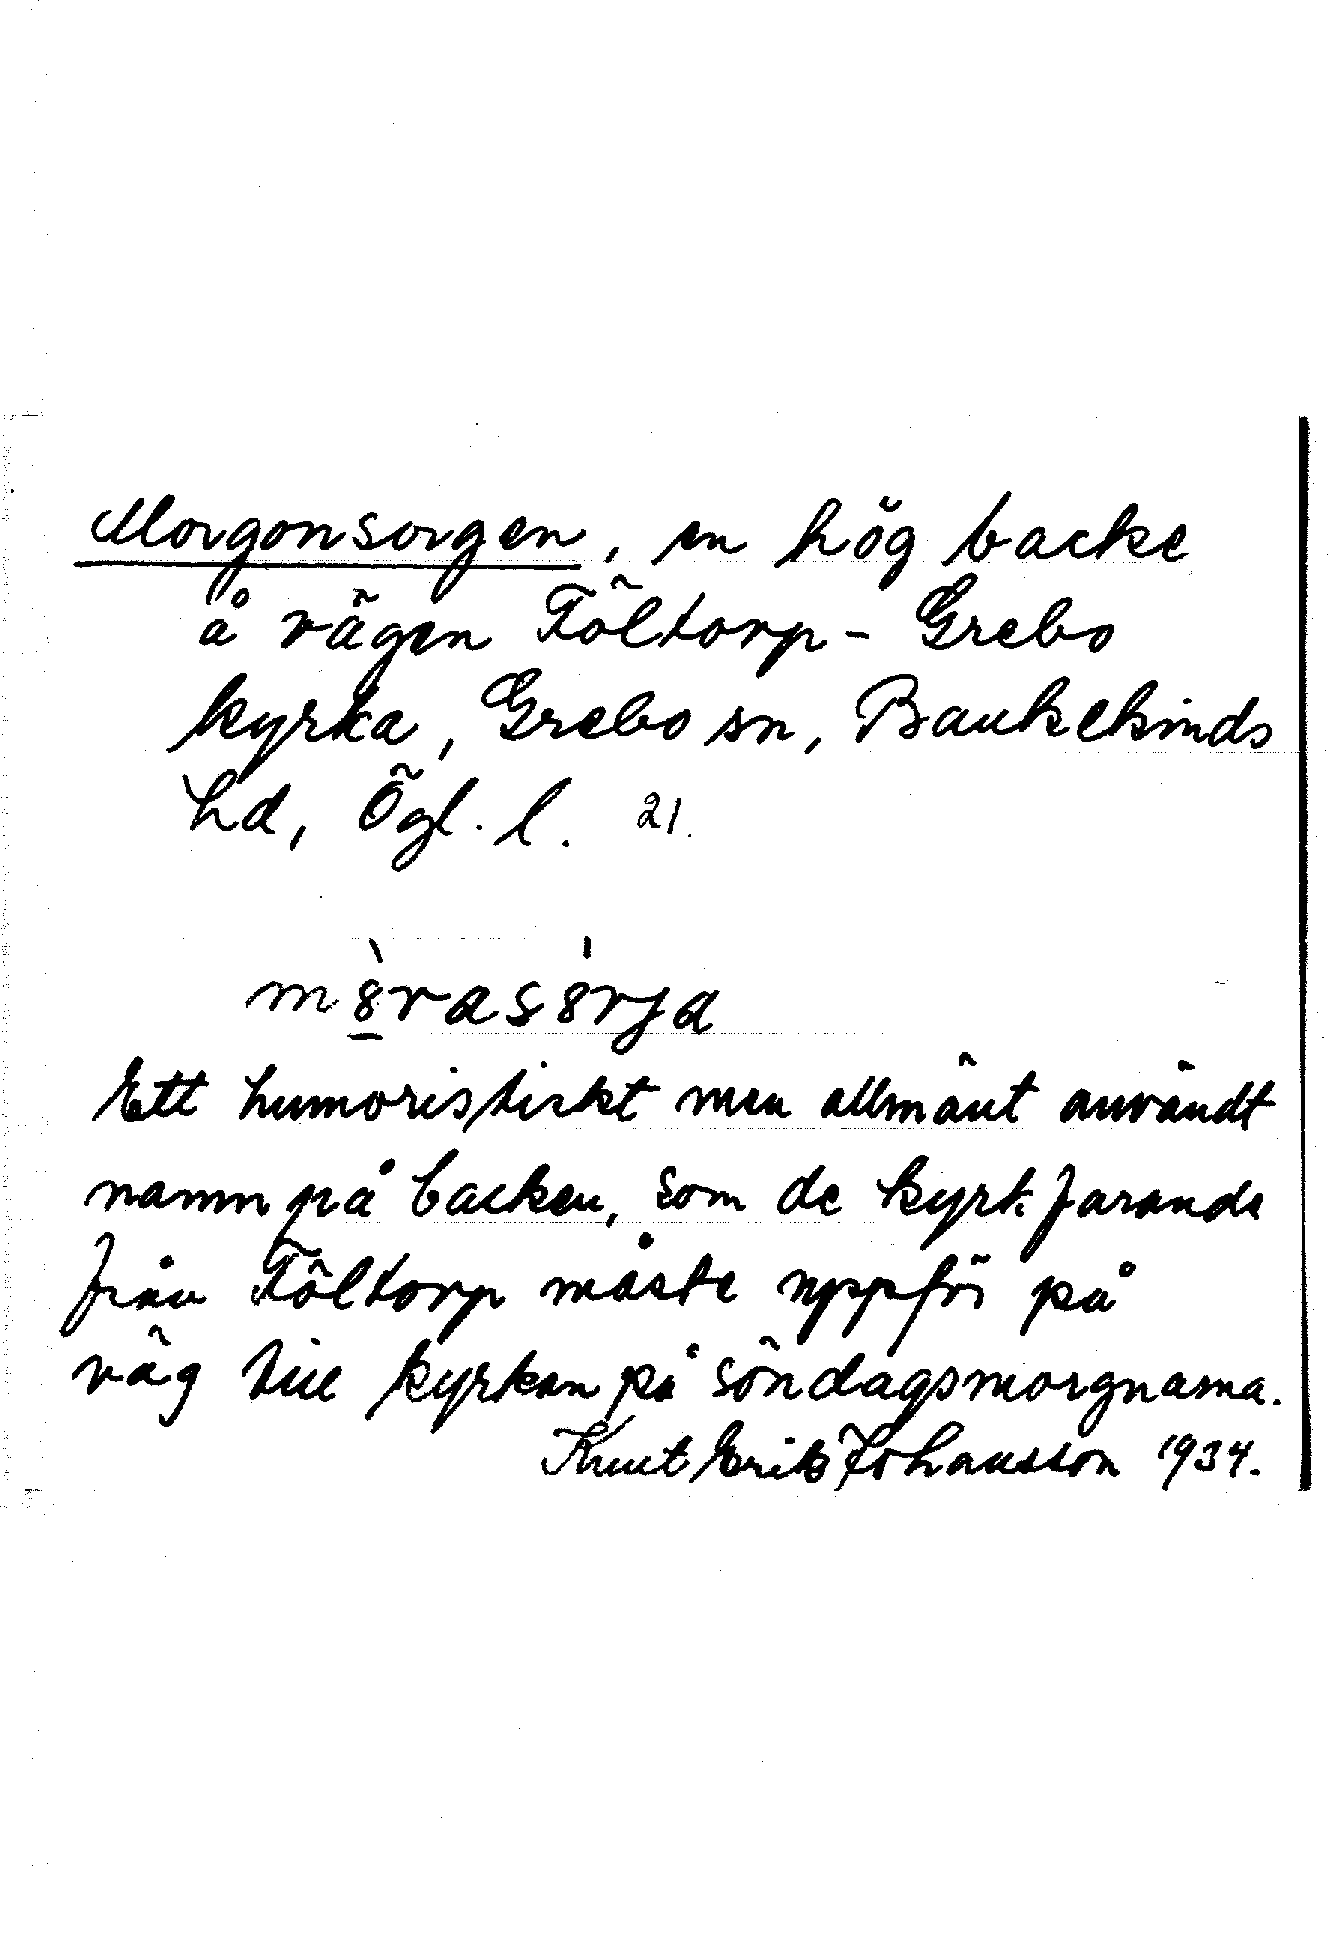 Morgonsorgen, en hög backe
å vägen Föltorp - Grebo
kyrka, Grebo sn, Bankekinds
hd, Ögl. l. 21.
Ett humoristiskt men allmänt användt
namn på backen, som de kyrkfarande
från Föltorp måste uppför på
väg till kyrkan på söndagsmorgnarna.
Knut Erik Johansson 1934.